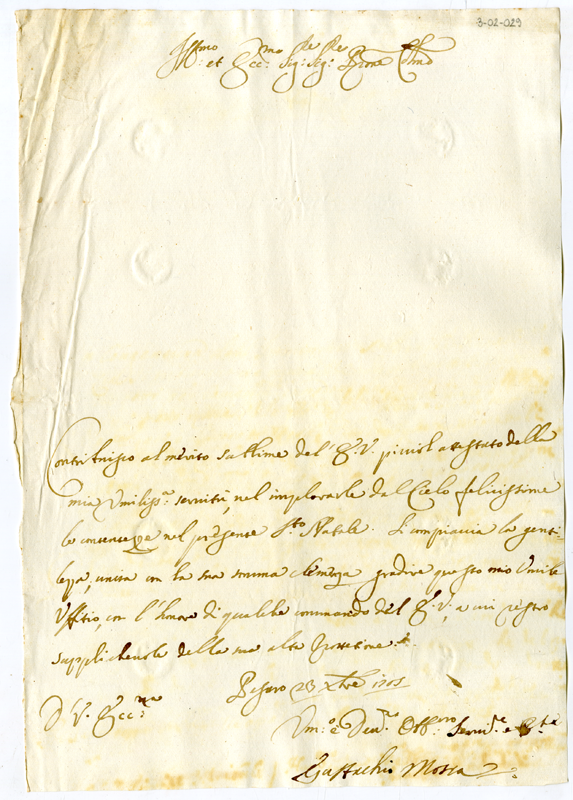 3-02-029
Ill.mo et Ecc.mo Sig.re Sig.re Prone Col.mo
Contribuisco al merito sublime dell'E.V. picciol attestato della
mia Umiliss.a servitù, nel implorarle dal Cielo felicissime
le contentezze nel presente S.to Natale. Si compiaccia la genti-
lezza, unita con la sua somma clemenza gradire questo mio Umile
Uffitio, con l'honore di qualche commando del E.V., a cui resto
supplichevole della sua alta Protetione.
D V. Ecc.za
Pesaro 23 Xbre 1705
Um.o e Dev.mo Obb.mo Servid.e
Eustachio Mosca